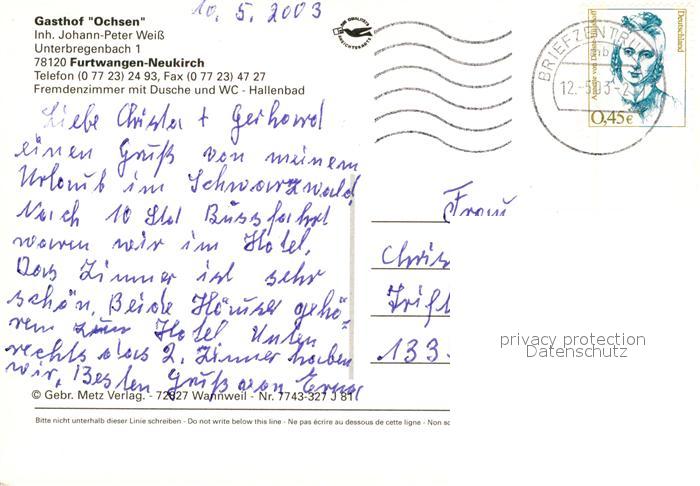 10. 5. 2003
Gasthof "Ochsen"
Inh. Johann-Peter Weiß
Unterbregenbach 1
78120 Furtwangen-Neukirch
Telefon (0 77 23) 24 93, Fax (0 77 23) 47 27
Fremdenzimmer mit Dusche und WC - Hallenbad
Liebe Christa + Gerhard
einen Gruß von meinem
Urlaub im Schwarzwald
Nach 10 Std Bussfahrt
waren wir im Hotel,
Das Zimmer ist sehr
schön, Beide Häuser gehö-
ren zum Hotel Unten
rechts das 2. Zimmer haben
wir, Besten Gruß von Erna
© Gebr. Metz Verlag. - 72827 Wannweil - Nr. 7743-327 J 81
Bitte nicht unterhalb dieser Linie schreiben - Do not write below this line - Ne pas écrire au dessous de cette ligne - Non sc
BRIEFZENTRUM
12.-5.03-2
Deutschland
0,45€
Frau
Chris
Trift
133.
privacy protection
Datenschutz